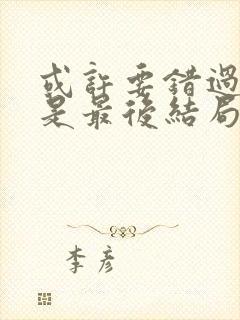 或許要錯過
是最後結局
李彥